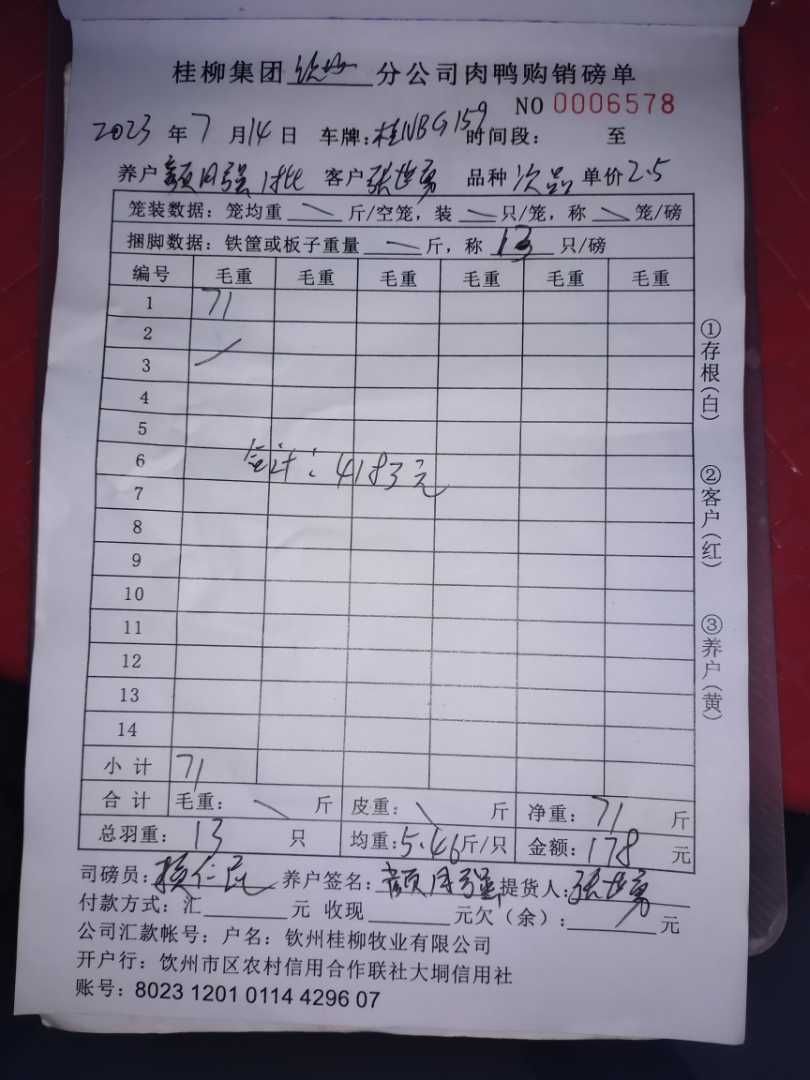 桂柳集团钦州分公司肉鸭购销磅单
NO 0006578
2023年7月14日 车牌：桂NBG159 时间段： 至
养户 颜月强 客户张世勇 品种次品单价2.5
笼装数据：笼均重 斤/空笼，装 只/笼，称 笼/磅
捆脚数据：铁筐或板子重量 斤，称 13 只/磅
编号 毛重 毛重 毛重 毛重 毛重 毛重
1 71
2
3
4
5
6
合计：4183元
7
8
9
10
11
12
13
14
小计 71
合计 毛重： 斤 皮重： 斤 净重：71斤
总羽重：13 只 均重：5.46斤/只 金额：178元
司磅员： 养户签名：颜月强 提货人：张世勇
付款方式：汇 元 收现 元欠（余）： 元
公司汇款帐号：户名：钦州桂柳牧业有限公司
开户行：饮州市区农村信用合作联社大垌信用社
账号：8023 1201 0114 4296 07
①存根（白）
②客户（红）
③养户（黄）